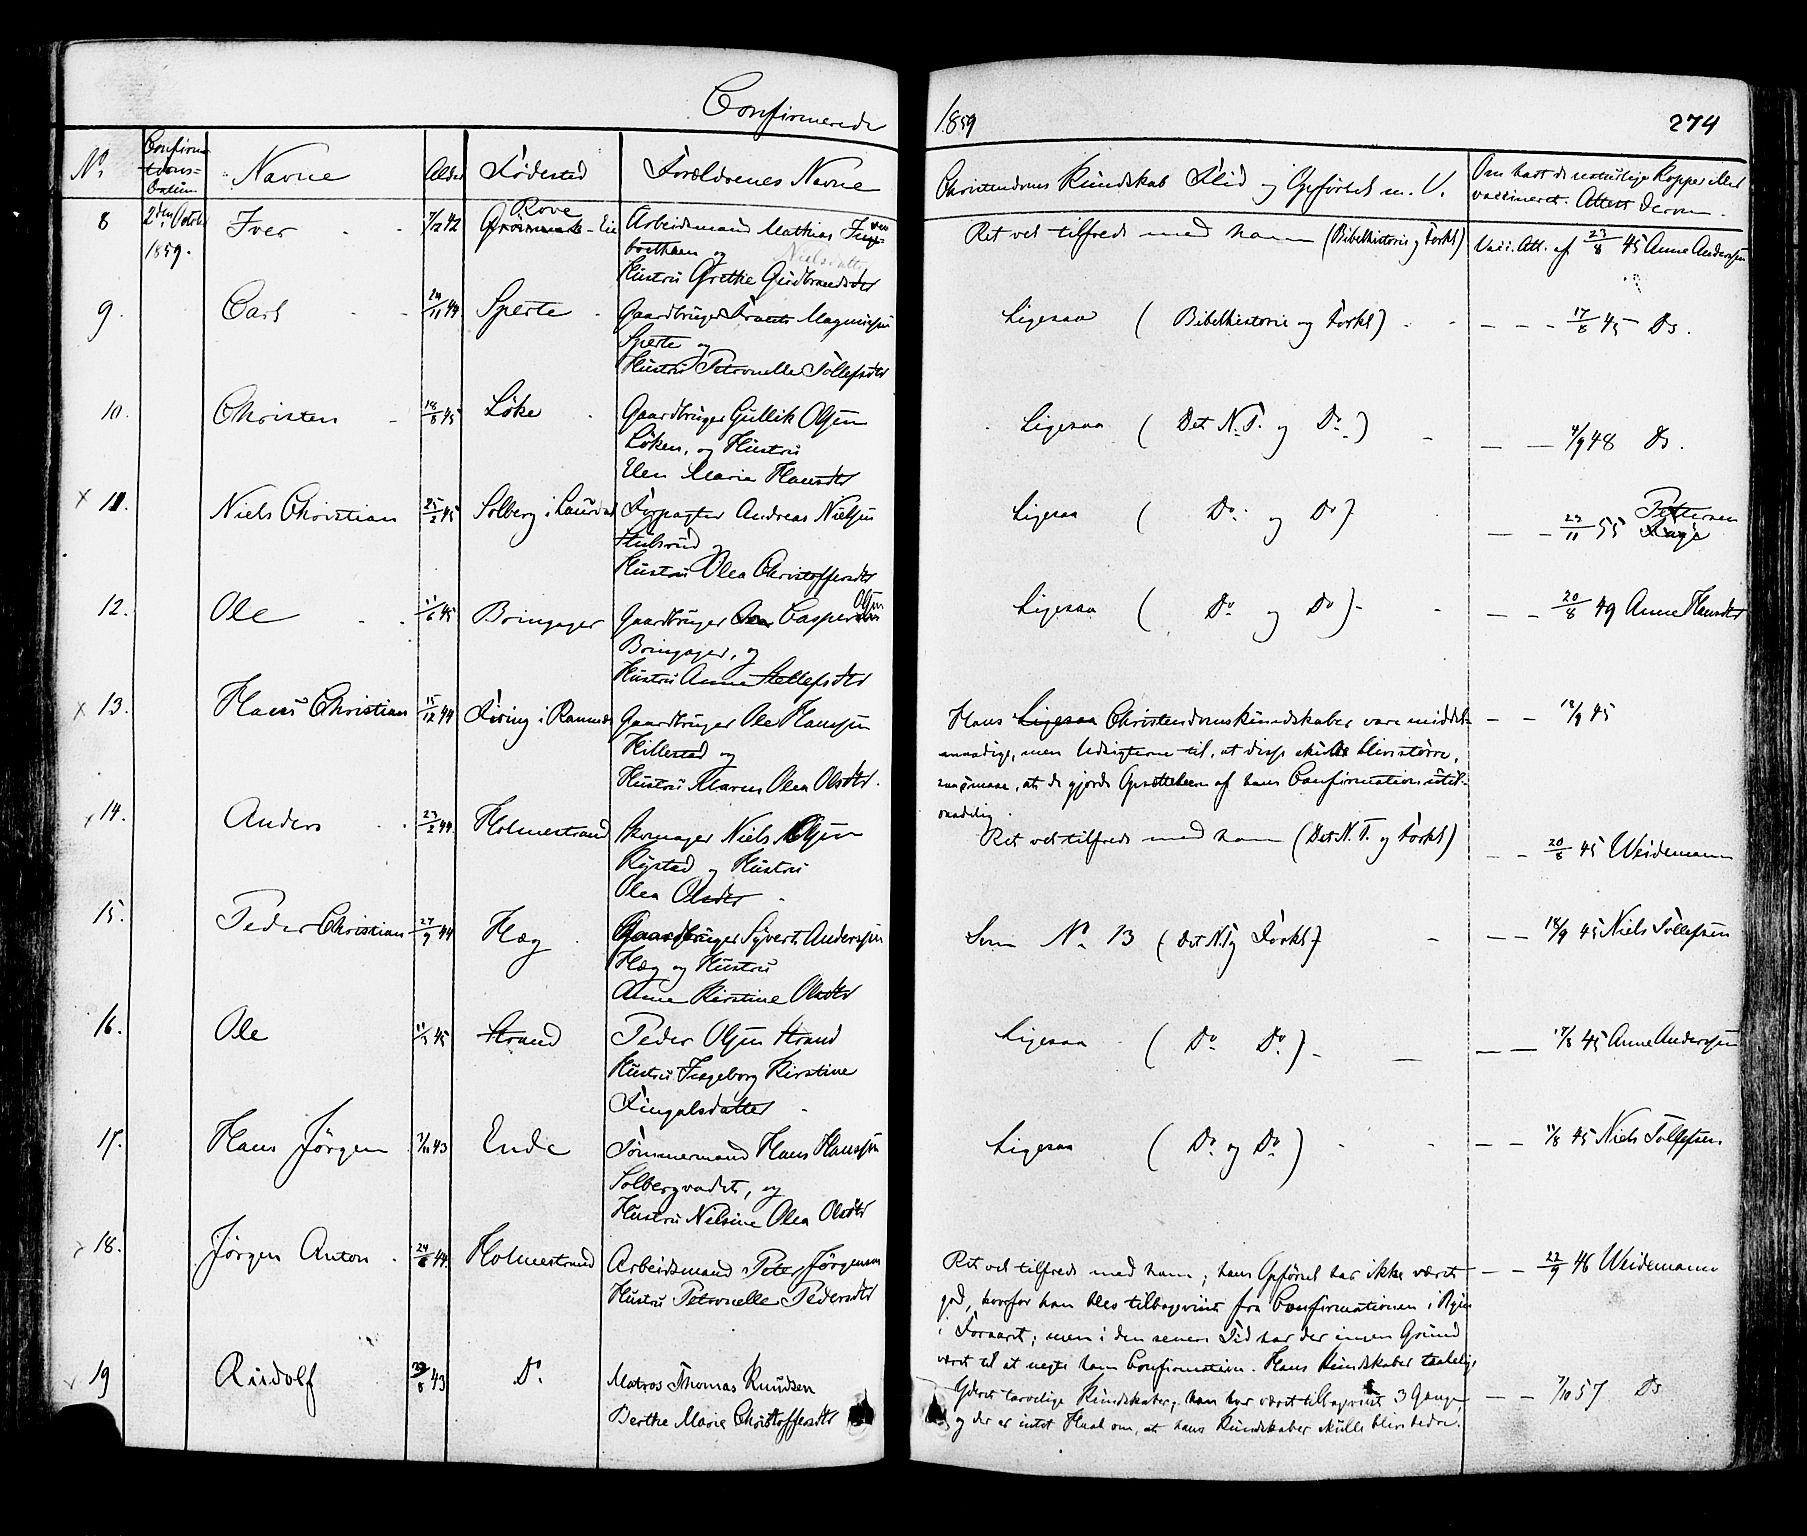 Confirmerede
1859
274
No. Confirmations-Datum Navne Alder Fødested Forældrenes Navne Christendoms Kundskab Flid og Opførsel m. V. Om havt de naturlige Kopper eller
vaccineret. Attest derom.
8 2den Octob. 1859. Iver 42 Rove Eie Arbeidsmand Mathias
og Nielsdatt
Hustru Grethe Gudbrandsdtr
Ret vel tilfreds med ham (Bibelhistorie og Forkl) Vacc. Att. af 23/8 45 Anne Anderssen
9. Carl 24/11 44 Sperte Gaardbruger Frants Magnussen
Sperte og
Hustru Petronelle Tollefsdtr
Ligesaa (Bibelhistorie og Forkl) 17/8 45 Do.
10. Christen 18/8 45 Løke Gaardbruger Gullik Olsen
Løken, og Hustru
Elen Marie Hansdtr
Ligesaa (Det N. T. og Do.) 4/9 48 Do.
x 11. Niels Christian 25/2 45 Solberg i Laurdal Forpagter Andreas Nielsen
Stubsrud og
Hustru Olea Christoffersdtr
Ligesaa (Do. og Do) 23/11 55 Pettersen
12. Ole 11/6 45 Bringager Gaardbruger Casper Olsen
Bringager, og
Hustru Anne Stellefsdtr
Ligesaa (Do og Do) 20/8 49 Anne Hansdtr
x 13. Hans Christian 15/12 44 i Ramnæs Gaardbruger Ole Hanssen
Hillestad og
Hustru Maren Olea Olsdtr.
Hans Ligesaa Christendomskundskaber vare middel-
maadige, men Udsigterne til, at disse skulde blive større,
saa smaae, at de gjorde Opsættelsen af hans Confirmation util-
raadelig. 12/9 45
x 14. Anders 23/2 44 Holmestrand Skomager Niels Olsen
Rystad og Hustru
Olea Olsdtr
Ret vel tilfreds med ham (Det N. T. og Forkl) 20/8 45 Weidemann
15. Peder Christian 27/9 44 Hæg Gaardbruger Syvert Anderssen
Hæg og Hustru
Anne Kirstine Olsdtr
Som No. 13 (Det N.T. og Forkl) 18/9 45 Niels Tollefsen
16. Ole 45 Strand Peder Olsen Strand
Hustru Ingeborg Kirstine
Fingalsdatter
Ligesaa (Do. Do.) 17/8 45 Anne Anderssen
17. Hans Jørgen 43 Ende Tømmermand Hans Hanssen
Solbergvadet, og
Hustru Nilsine Olea Olsdtr
Ligesaa (Do. og Do.) 11/8 45 Niels Tollefsen
x 18. Jørgen Anton 24/8 44 Holmestrand Arbeidsmand Peter Jørgensen
Hustru Petronelle Pedersdtr
Ret vel tilfreds med ham; hans Opførsel har ikke været
god, hvorfor han blev tilbageviist fra Confirmationen i Byen
i Foraaret; men i den senere Tid har der ingen Grund
været til at negte ham Confirmation. Hans Kundskaber taalelige
22/9 46 Weidemann
19 Rudolf 29/8 43 Do. Matros Thomas Knudsen
Berthe Marie Christoffersdtr
Yderst tarvelige Kundskaber; han har været tilbageviist 3 Gange
og der er intet Haab om, at hans Kundskaber skulle blive bedre.
7/10 57 Do